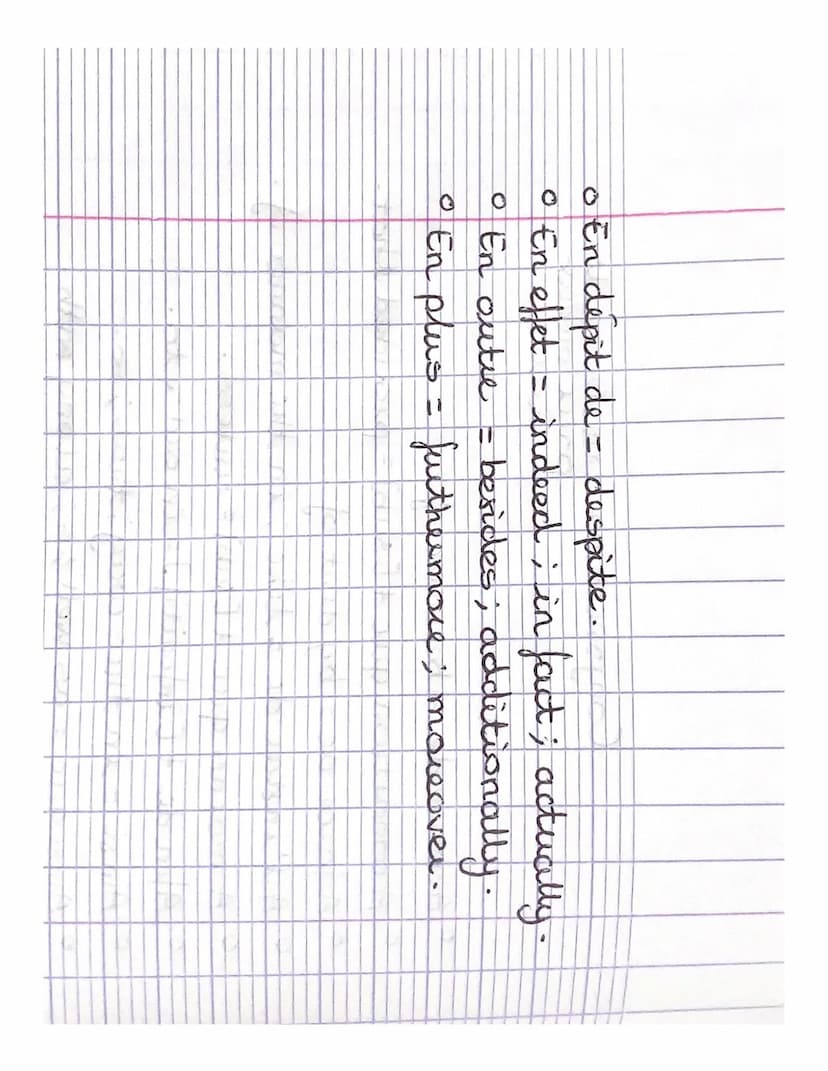 o En dépit de = despite.
o En effet = indeed ; in fact ; actually.
o En outre = besides ; additionally.
o En plus = futhermore ; moreover.